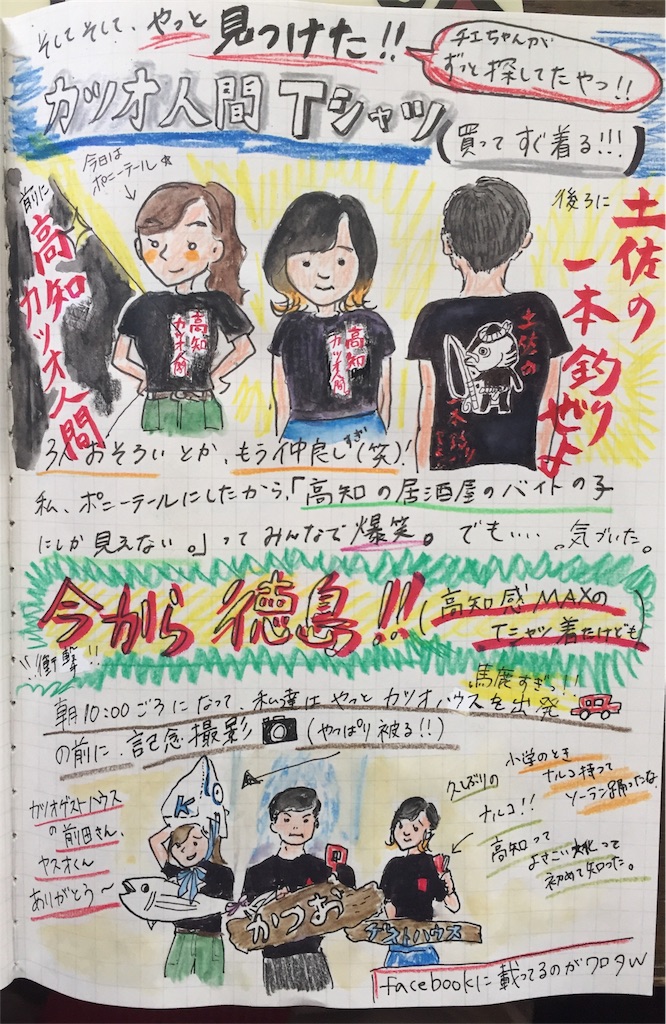 そしてそして、やっと見つけた!!
チエちゃんが
ずっと探してたやつ!!
カツオ人間Tシャツ
(買ってすぐ着る!!!)
今日は
ポニーテール☆
前に
高知カツオ人間
高知
カツオ人間
高知
カツオ人間
後ろに
土佐の
一本釣りぜよ
土佐の
一本釣り
ぜよ
3人おそろいとか、もう仲良しすぎ(笑)!
私、ポニーテールにしたから、「高知の居酒屋のバイトの子
にしか見えない。」ってみんなで爆笑。でも‥‥。気づいた。
今から徳島!!
(高知感MAXの
Tシャツ着たけども)
"衝撃"
馬鹿すぎっ!!
朝10:00ごろになって、私達はやっとカツオハウスを出発
の前に、記念撮影(やっぱり被る!!)
カツオゲストハウス
の前田さん、
ヤスオくん
ありがとう〜
久しぶりの
ナルコ!!
小学のとき
ナルコ持って
ソーラン踊ったな
高知って
よさこいって
初めて知った。
かつお
ゲストハウス
facebookに載ってるのがワロタw